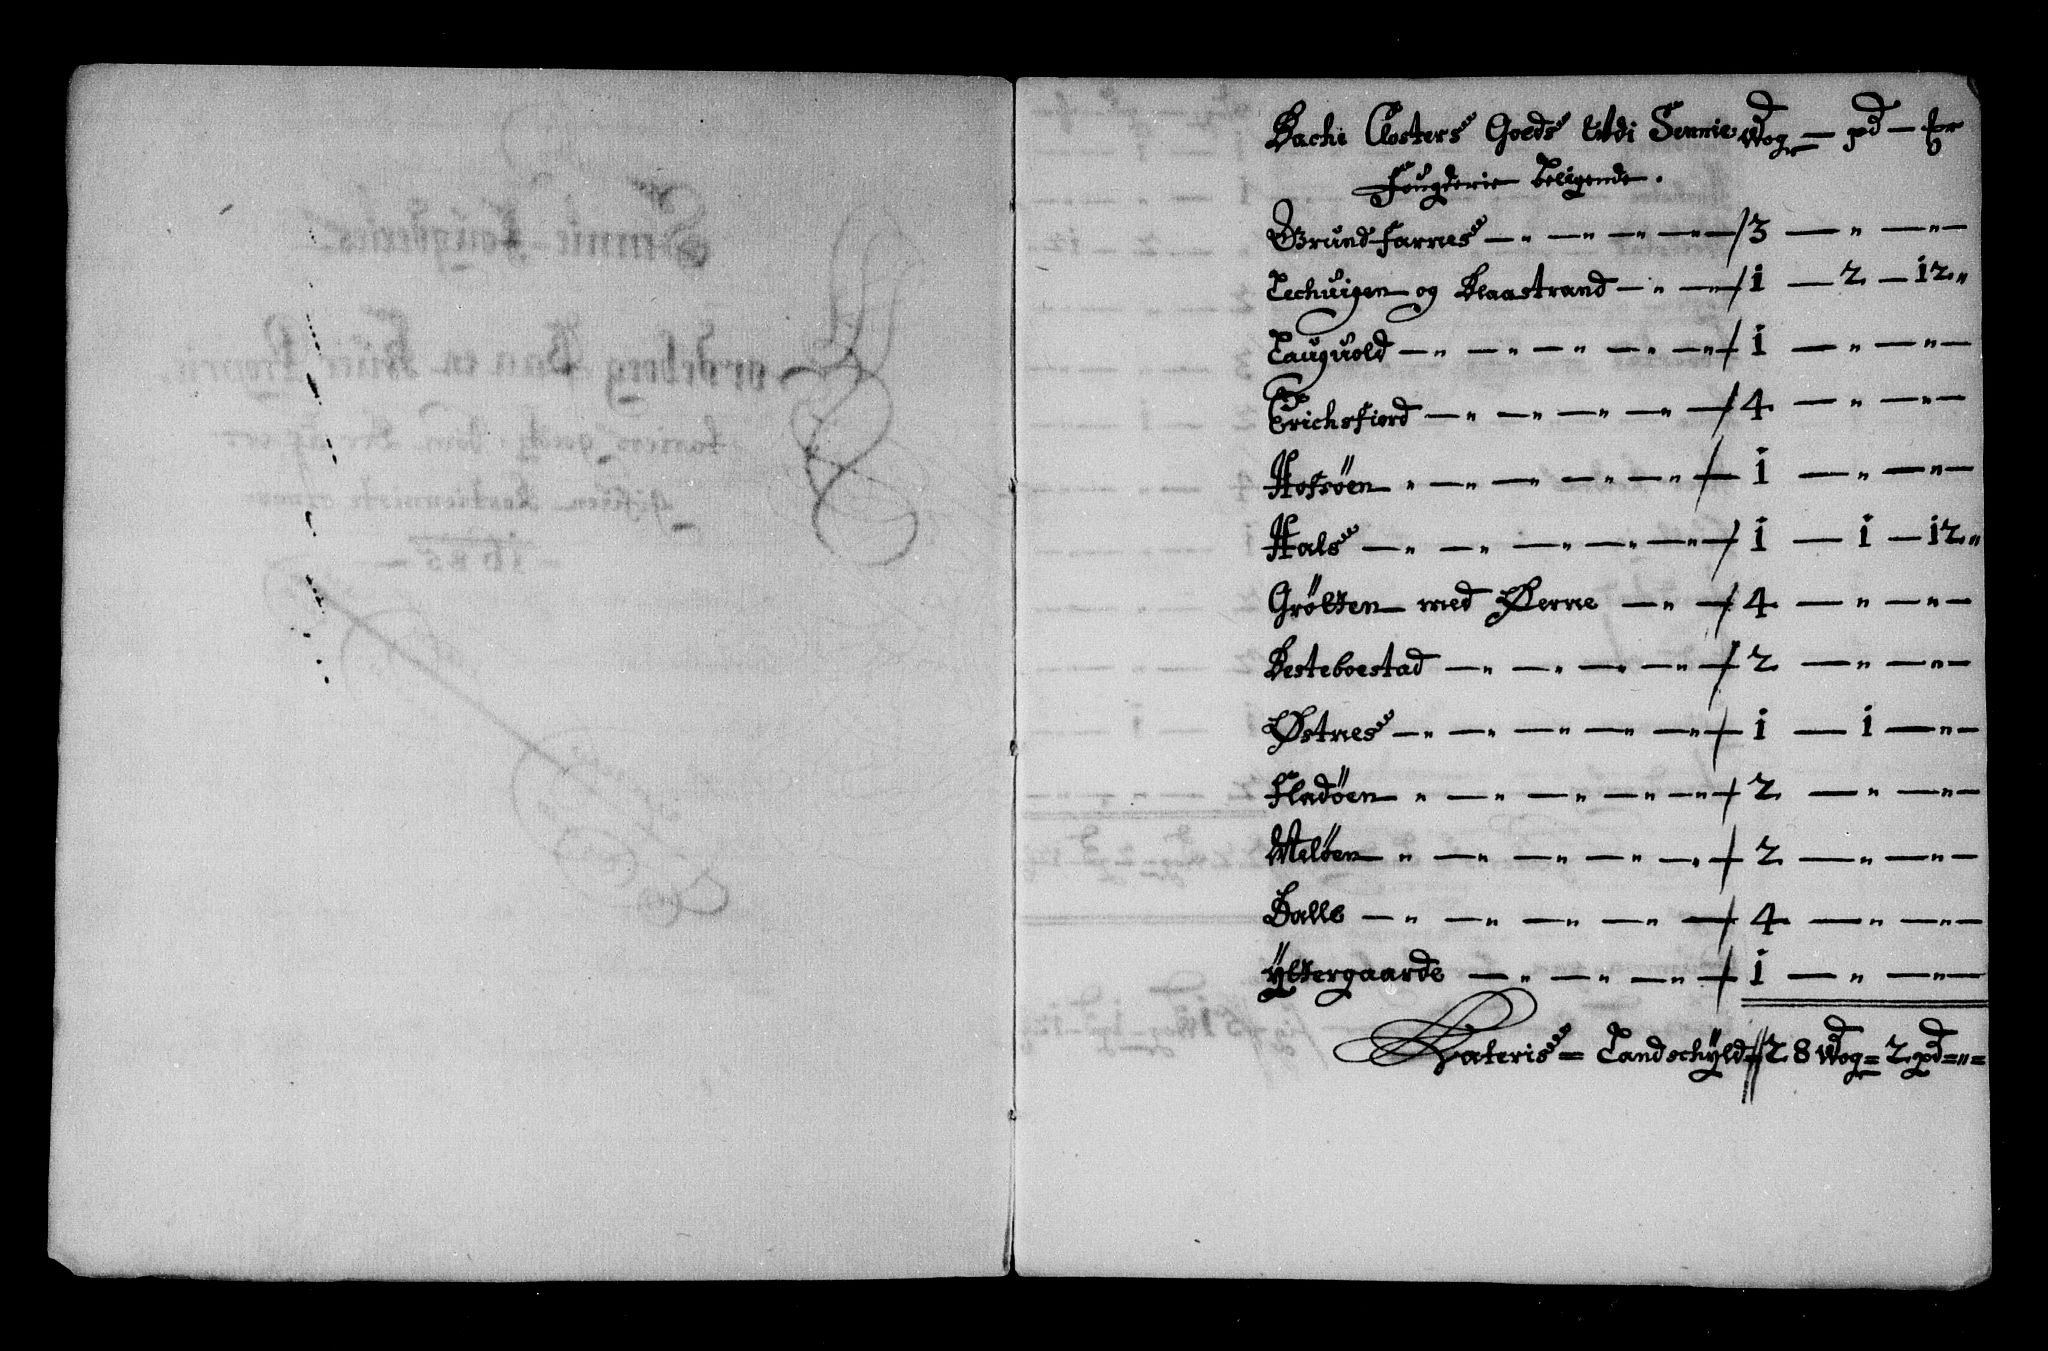 Bache Closters Goeds Udi Sennie Wog — pd — ħr
Fougderie beligende.
Grundfarnes — „ — „ — „ — „ — / 3 — „ — „ —
Lechuigen og Blaastrand — „ — „ — / 1 — 2 — 12 „
Laugvold — „ — „ — „ — „ — „ — / 1 — „ — „ —
Erichsfiord — „ — „ — „ — „ — / 4 — „ — „ —
Hofsöen „ — „ — „ — „ — „ — / 1 — „ — „ —
Hals — „ — „ — „ — „ — „ — / 1 — 1 — 12 „
Grötten med Øerne — „ — / 4 — „ — „ —
Besteboestad — „ — „ — „ — „ — / 2 — „ — „ —
Østnes — „ — „ — „ — „ — „ — / 1 — 1 — „ —
Fladöen „ — „ — „ — „ — „ — / 2 — „ — „ —
Melöen „ — „ — „ — „ — „ — / 2 — „ — „ —
Balle — „ — „ — „ — „ — / 4 — „ — „ —
Ÿttergaarde — „ — „ — „ — / 1 — „ — „ —
Lateris = Landschÿld = // 28 Wog = 2 pd = „ =